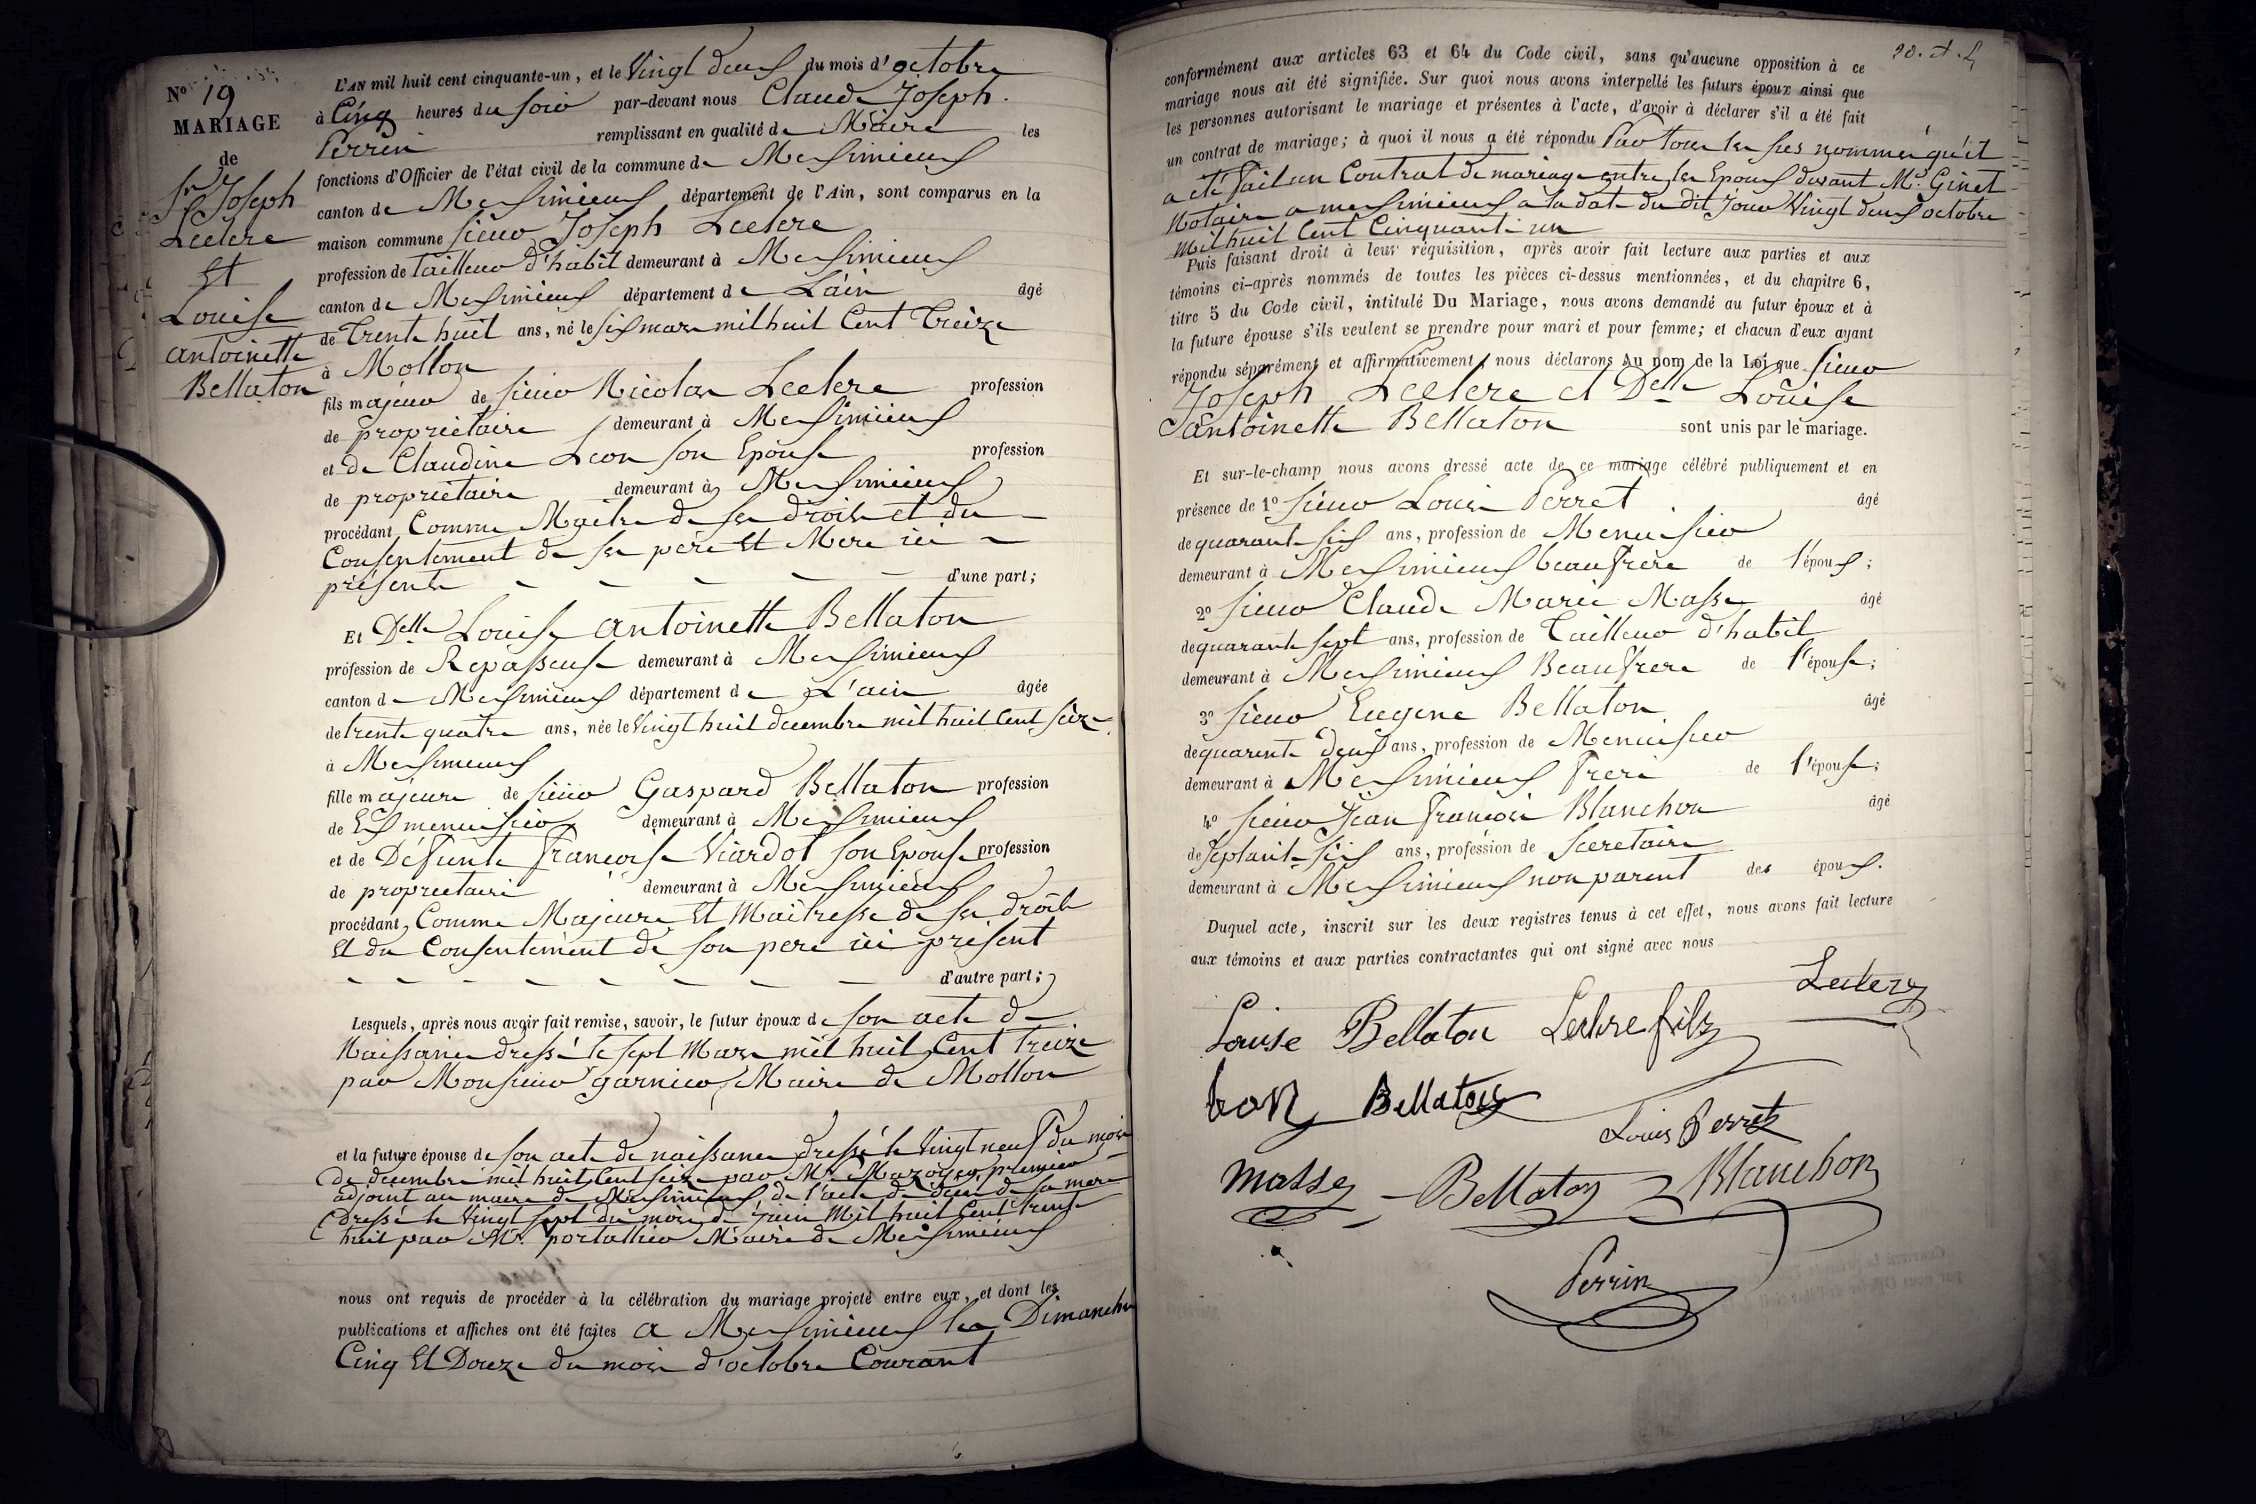 N° 19
MARIAGE
de
Sr Joseph
Leclerc
Et
Louise
antoinette
Bellaton
L'AN mil huit cent cinquante-un, et le Vingt deux du mois d'octobre
à Cinq heures du soir par-devant nous Claude Joseph
Perrin remplissant en qualité de Maire les
fonctions d'Officier de l'état civil de la commune de Meximieux
canton de Meximieux département de l'Ain, sont comparus en la
maison commune sieur Joseph Leclerc
profession de Tailleur d'habit demeurant à Meximieux
canton de Meximieux département de L'ain âgé
de Trente huit ans, né le six mars mil huit Cent Treize
à Mollon
fils majeur de sieur Nicolas Leclerc profession
de propriétaire demeurant à Meximieux
et de Claudine Leon son Epouse profession
de propriétaire demeurant à Meximieux
procédant Comme Maître de ses droits et du
Consentement de ses père Et Mere ici
présents d'une part;
Et Delle Louise antoinette Bellaton
profession de Repasseuse demeurant à Meximieux
canton de Meximieux département de L'ain âgée
de trente quatre ans, née le Vingt huit decembre mil huit Cent seize
à Meximieux
fille majeure de sieur Gaspard Bellaton profession
de Ex menuisier demeurant à Meximieux
et de Défunte françoise Viardot son Epouse profession
de propriétaire demeurant à Meximieux
procédant Comme Majeure Et Maîtresse de ses droits
Et du Consentement de son pere ici présent
d'autre part;
Lesquels, après nous avoir fait remise, savoir, le futur époux de son acte de
Naissance dressé le sept Mars mil huit Cent Treize
par Monsieur garnier Maire de Mollon
et la future épouse de son acte de naissance dressé le Vingt neuf du mois
de decembre mil huit Cent seize par Mr. Mazoyer premier
adjoint au maire de Meximieux, de l'acte de décès de sa mere
dressé le Vingt sept du mois de juin Mil huit Cent trente
huit par Mr. portallier Maire de Meximieux
nous ont requis de procéder à la célébration du mariage projeté entre eux, et dont les
publications et affiches ont été faites a Meximieux les Dimanches
Cinq Et Douze du mois d'octobre Courant
conformément aux articles 63 et 64 du Code civil, sans qu'aucune opposition à ce
mariage nous ait été signifiée. Sur quoi nous avons interpellé les futurs époux ainsi que
les personnes autorisant le mariage et présentes à l'acte, d'avoir à déclarer s'il a été fait
un contrat de mariage; à quoi il nous a été répondu Par tous les sus nommés qu'il
a été fait un Contrat de mariage entre les Epoux devant Me. Ginet
Notaire a meximieux a la date du dit jour Vingt deux octobre
Mil huit Cent Cinquante un
Puis faisant droit à leur réquisition, après avoir fait lecture aux parties et aux
témoins ci-après nommés de toutes les pièces ci-dessus mentionnées, et du chapitre 6,
titre 5 du Code civil, intitulé Du Mariage, nous avons demandé au futur époux et à
la future épouse s'ils veulent se prendre pour mari et pour femme; et chacun d'eux ayant
répondu séparément et affirmativement, nous déclarons Au nom de la Loi que sieur
Joseph Leclerc et Delle Louise
antoinette Bellaton sont unis par le mariage.
Et sur-le-champ nous avons dressé acte de ce mariage célébré publiquement et en
présence de 1° sieur Louis Perret âgé
de quarante six ans, profession de Menuisier
demeurant à Meximieux beaufrère de l'époux;
2° sieur Claude Marie Masse âgé
de quarante sept ans, profession de Tailleur d'habit
demeurant à Meximieux Beaufrere de l'épouse;
3° sieur Eugene Bellaton âgé
de quarente deux ans, profession de Menuisier
demeurant à Meximieux frere de l'épouse;
4° sieur Jean françois Blanchon âgé
de septante six ans, profession de Secretaire
demeurant à Meximieux non parent des époux.
Duquel acte, inscrit sur les deux registres tenus à cet effet, nous avons fait lecture
aux témoins et aux parties contractantes qui ont signé avec nous
Leclerc
Louise Bellaton Leclerc fils
Bellaton
Louis Perret
Masse Bellaton Blanchon
Perrin